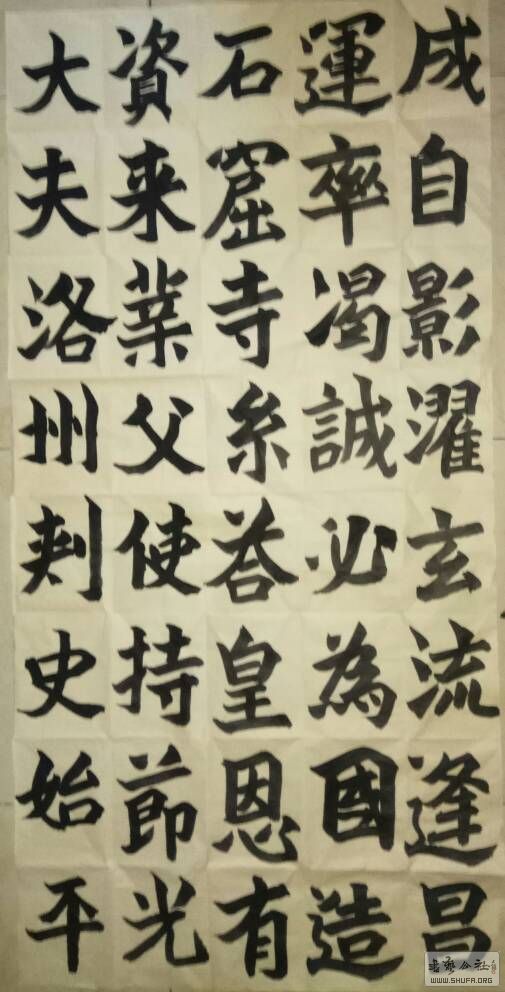 成自影濯玄流逢昌
運率渴誠必為國造
石窟寺糸荅皇恩有
資来業父使持節光
大夫洛州刾史始平
書藝公社
WWW.SHUFA.ORG